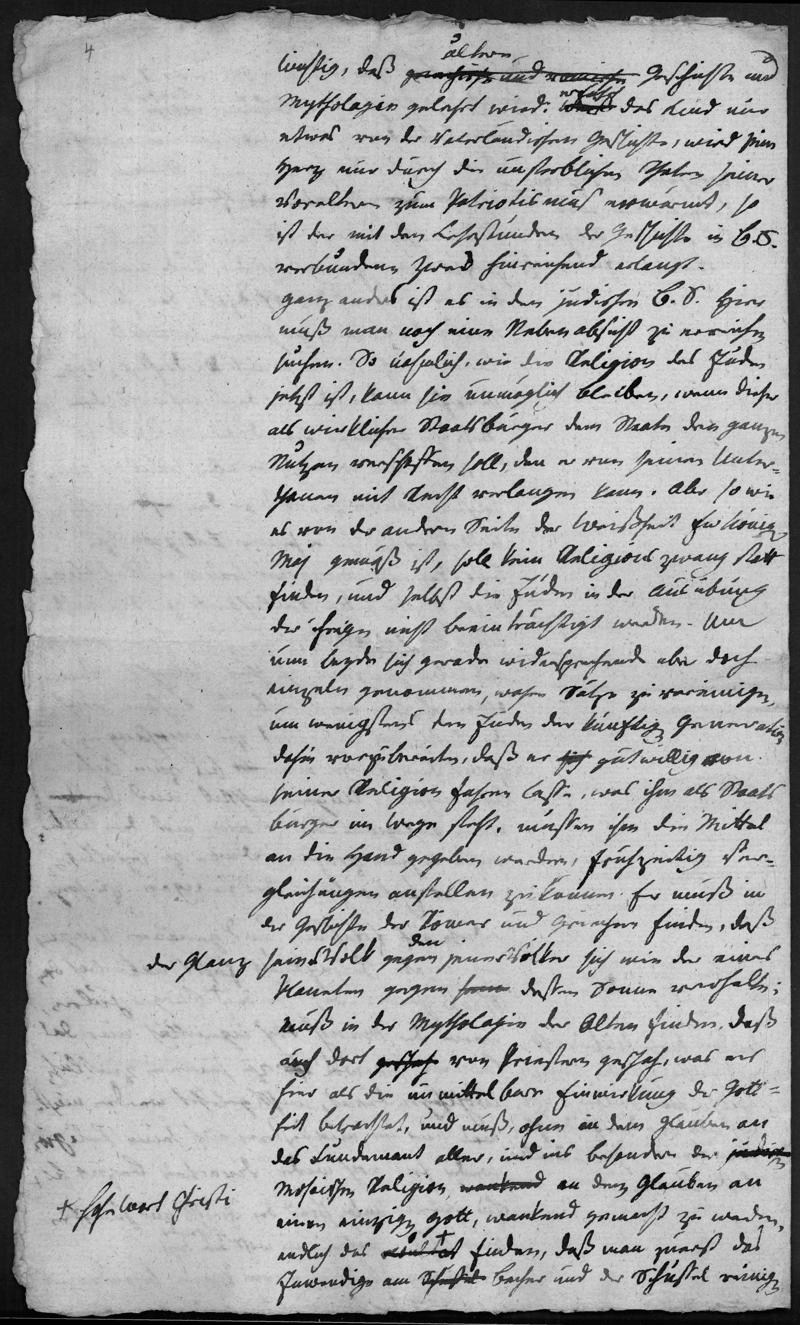 4
ältere
wichtig, daß griechische und römische Geschichte und
erfährt
Mythologie gelehrt wird. das Kind nur
etwas von der Vaterländischen Geschichte, wird sein
Herz nur durch die unsterblichen Thaten seiner
Voraeltern zum Patriotismus erwärmt, so
ist der mit den Lehrstunden der Geschichte in C. S.
verbundene Zweck hinreichend erlangt.
ganz anders ist es in den jüdischen C. S. Hier
muß man noch eine Nebenabsicht zu erreichen
suchen. So wie die Religion des Juden
jetzt ist, kann sie unmöglich bleiben, wenn dieser
als wirklicher Staatsbürger dem Staate den ganzen
Nutzen verschaffen soll, den er von seinen Unter-
thanen mit Recht verlangen kann. Aber so wie
es von der andern Seite der Weisheit Er König
Maj gemäß ist, soll kein Religions zwang statt
finden, und selbst die Juden in der Ausübung
der ihrigen nicht beeinträchtigt werden. Um
nun beyde sich gerade widersprechende aber doch
einzeln genommen, wahre Sätze zu vereinigen,
um wenigstens den Juden der künftigen Generation
dahin vorzubereiten, daß er sich gutwillig von
seiner Religion fahren lasse, was ihm als Staats
bürger im Wege steht, müssen ihm die Mittel
an die Hand gegeben werden, frühzeitig Ver-
gleichungen anstellen zu können. Er muß in
der Geschichte der Römer und Griechen finden, daß
der Glanz seines Volk gegen den jener Völker sich wie der eines
Planeten gegen dessen Sonne verhalte;
muß in der Mythologie der Alten finden, daß
auch dort geschah von Priestern geschah, was er
hier als die unmittelbare Einwirkung der Gott-
heit betrachtet, und muß, ohne in dem Glauben an
das Fundament aller, und ins besondere der jüdischen
Mosaischen Religion, wankend an dem Glauben an
einen einzigen Gott, wankend gemacht zu werden,
endlich das † finden, daß man zuerst das
† Christi
Inwendige am Schüssel becher und der Schüssel reinige